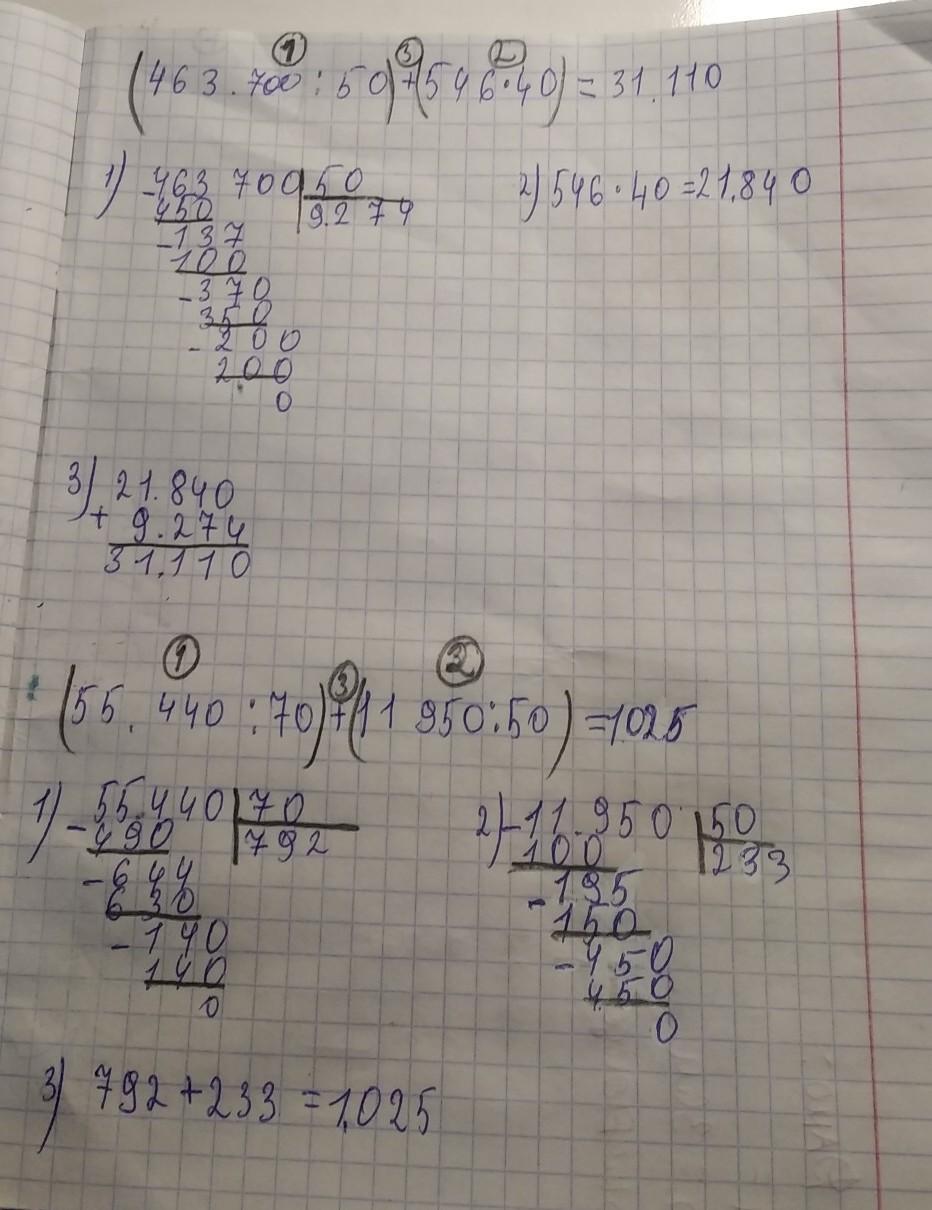 ① ③ ②
(463.700:50)+(546·40)=31.110
1) -463 700|50
450 9.274
-137
100
-370
350
-200
200
0
2) 546·40=21.840
3) 21.840
+ 9.274
31.110
① ③ ②
(55.440:70)+(11 950:50)=1025
1) -55.440|70
490 792
-644
630
-140
140
0
2) -11.950|50
100 233
-195
150
-450
450
0
3) 792+233=1.025